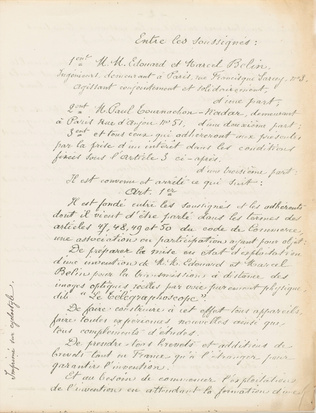 Entre les soussignés:
1ent M. M. Edouard et Marcel Belin,
Ingénieurs, demeurant à Paris, rue Francisque Sarcey, No 3.
Agissant conjointement et solidairement,
d'une part;
2ent M. Paul Tournachon-Nadar, demeurant
à Paris Rue d'Anjou No 51, d'une deuxième part;
3ent et tous ceux qui adhéreront aux présentes
par la prise d'un intérêt dans les conditions
fixées sous l'article 5 ci-après,
d'une troisième part;
Il est convenu et arrêté ce qui suit:
Art. 1er
Il est fondé entre les soussignés et les adhérents
dont il vient d'être parlé dans les termes des
articles 47, 48, 49 et 50 du code de Commerce,
une association en participations ayant pour objet:
De préparer la mise en état d'exploitation
d'une invention de M. M. Edouard et Marcel
Belin pour la transmission à distance, des
images optiques réelles par voie purement physique,
dite "Le Télégraphoscope".
De faire construire à cet effet tous appareils,
faire toutes expériences nouvelles ainsi que
tous compléments d'études.
De prendre tous brevets et additions de
brevets tant en France qu'à l'étranger pour
garantir l'invention.
Et au besoin de commencer l'exploitation
de l'invention en attendant la formation d'une